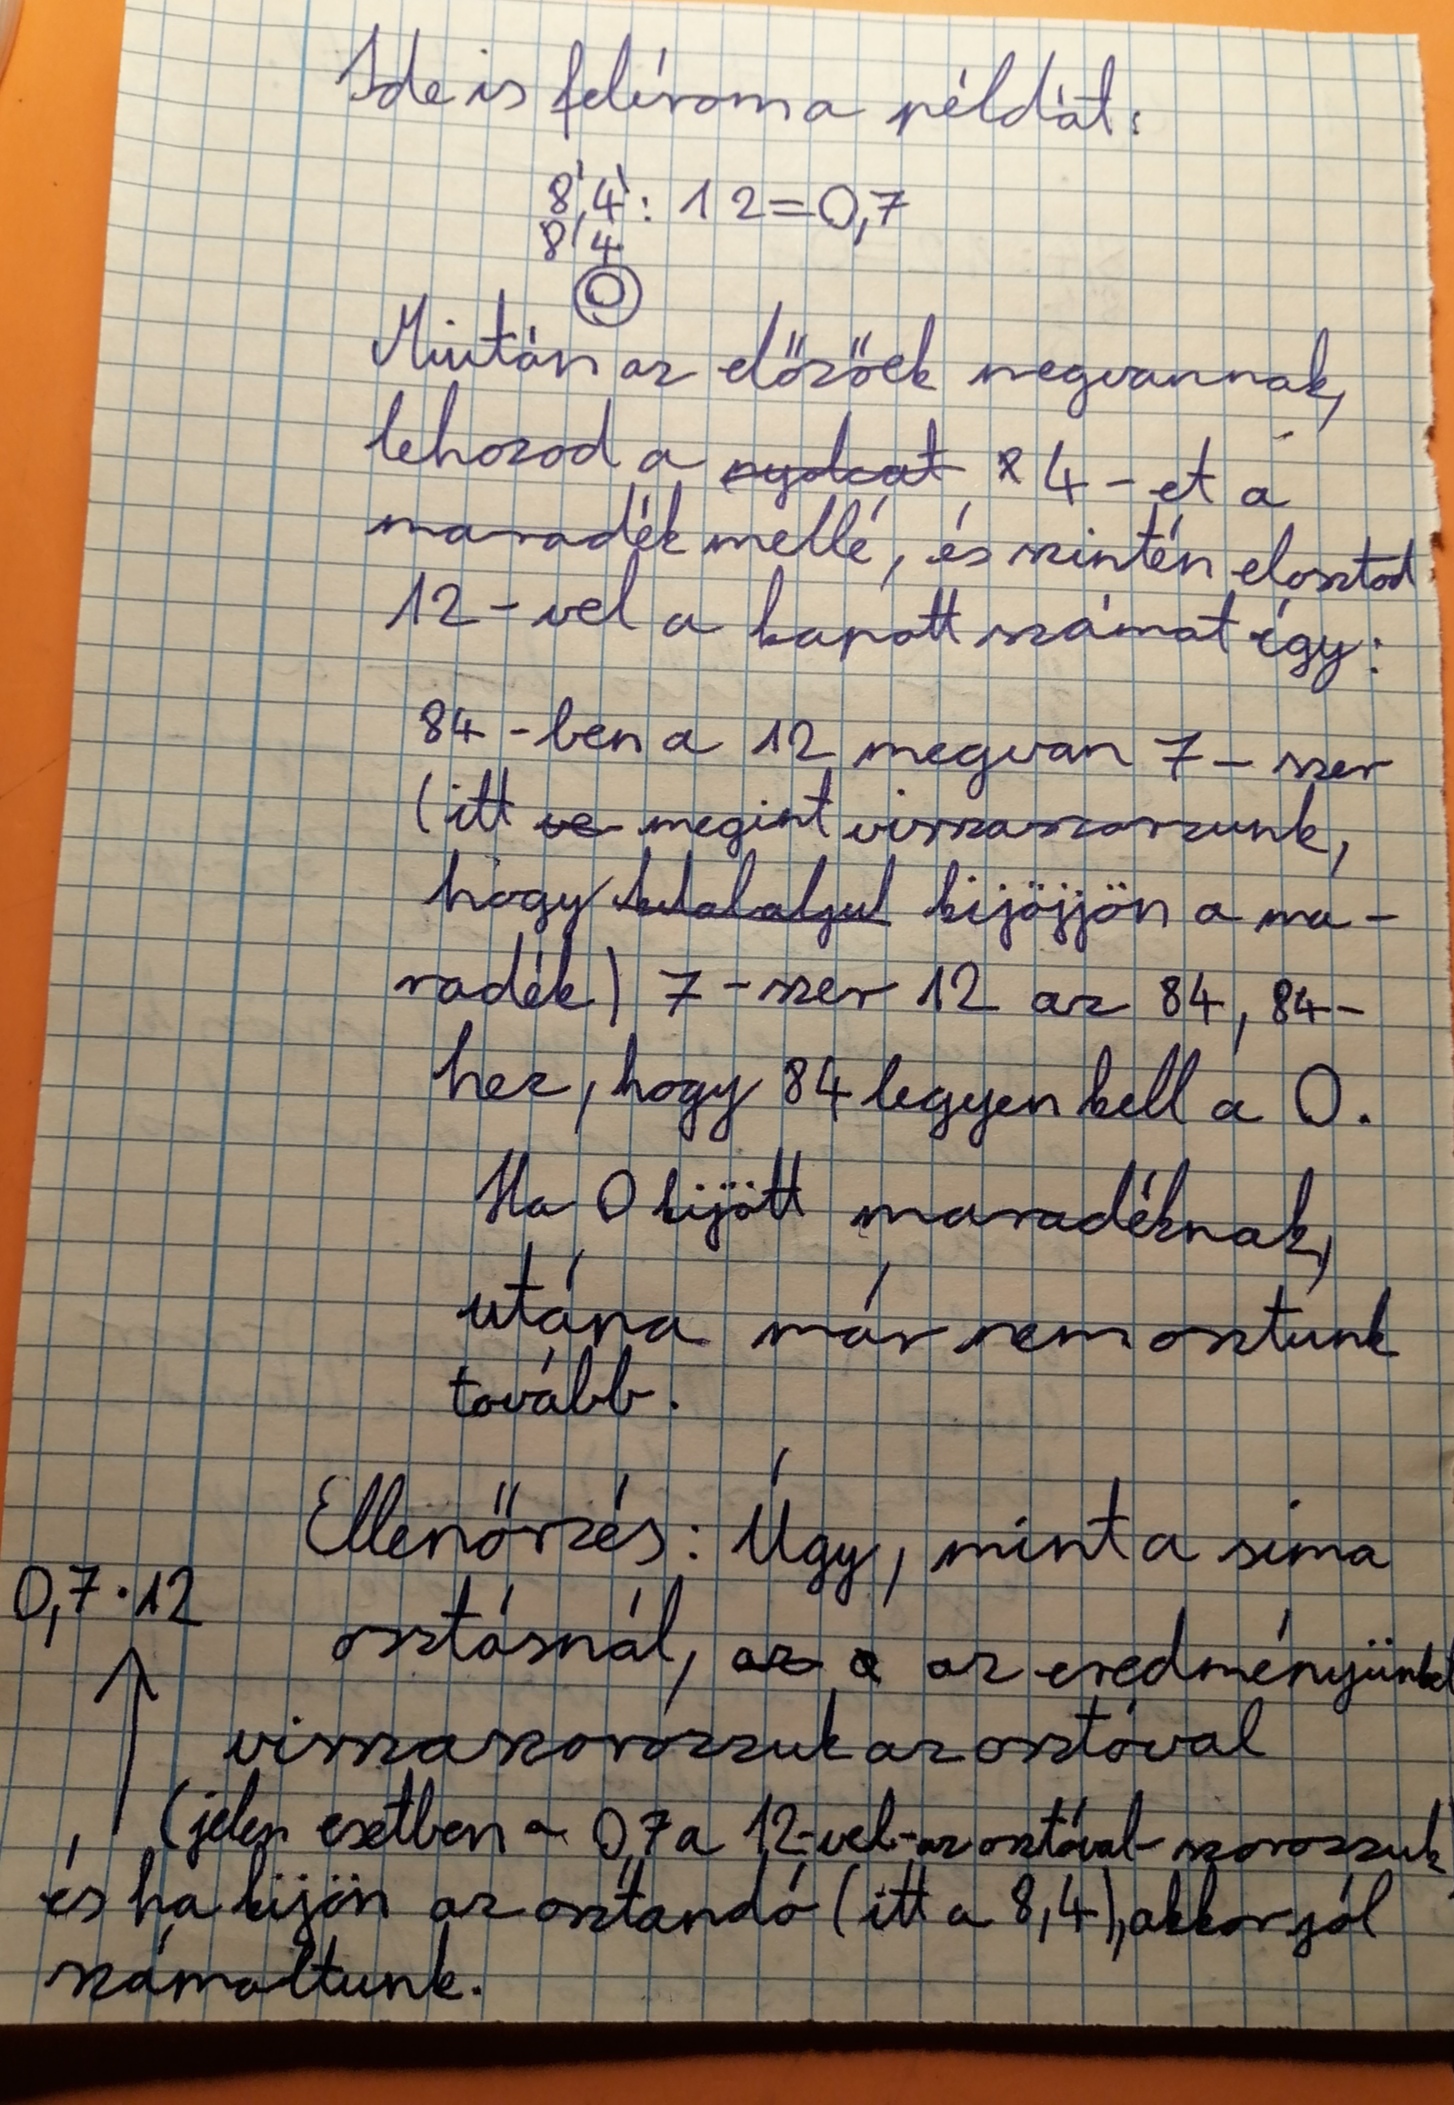 Ide is felírom a példát:
8,4 : 12 = 0,7
8 4
0
Miután az előzőek megvannak,
lehozod a nyolcat 4-et a
maradék mellé, és szintén elosztod
12-vel a kapott számot így:
84-ben a 12 megvan 7-szer
(itt ve megint visszaszorzunk,
hogy kijöjjön a ma-
radék) 7-szer 12 az 84, 84-
hez, hogy 84 legyen kell a 0.
Ha 0 kijött maradéknak,
utána már nem osztunk
tovább.
Ellenőrzés: Úgy, mint a sima
0,7·12
osztásnál, az a az eredményünket
visszaszorozzuk az osztóval
(jelen esetben a 0,7 a 12-vel-az osztóval-szorozzuk
és ha kijön az osztandó (itt a 8,4), akkor jól
számoltunk.